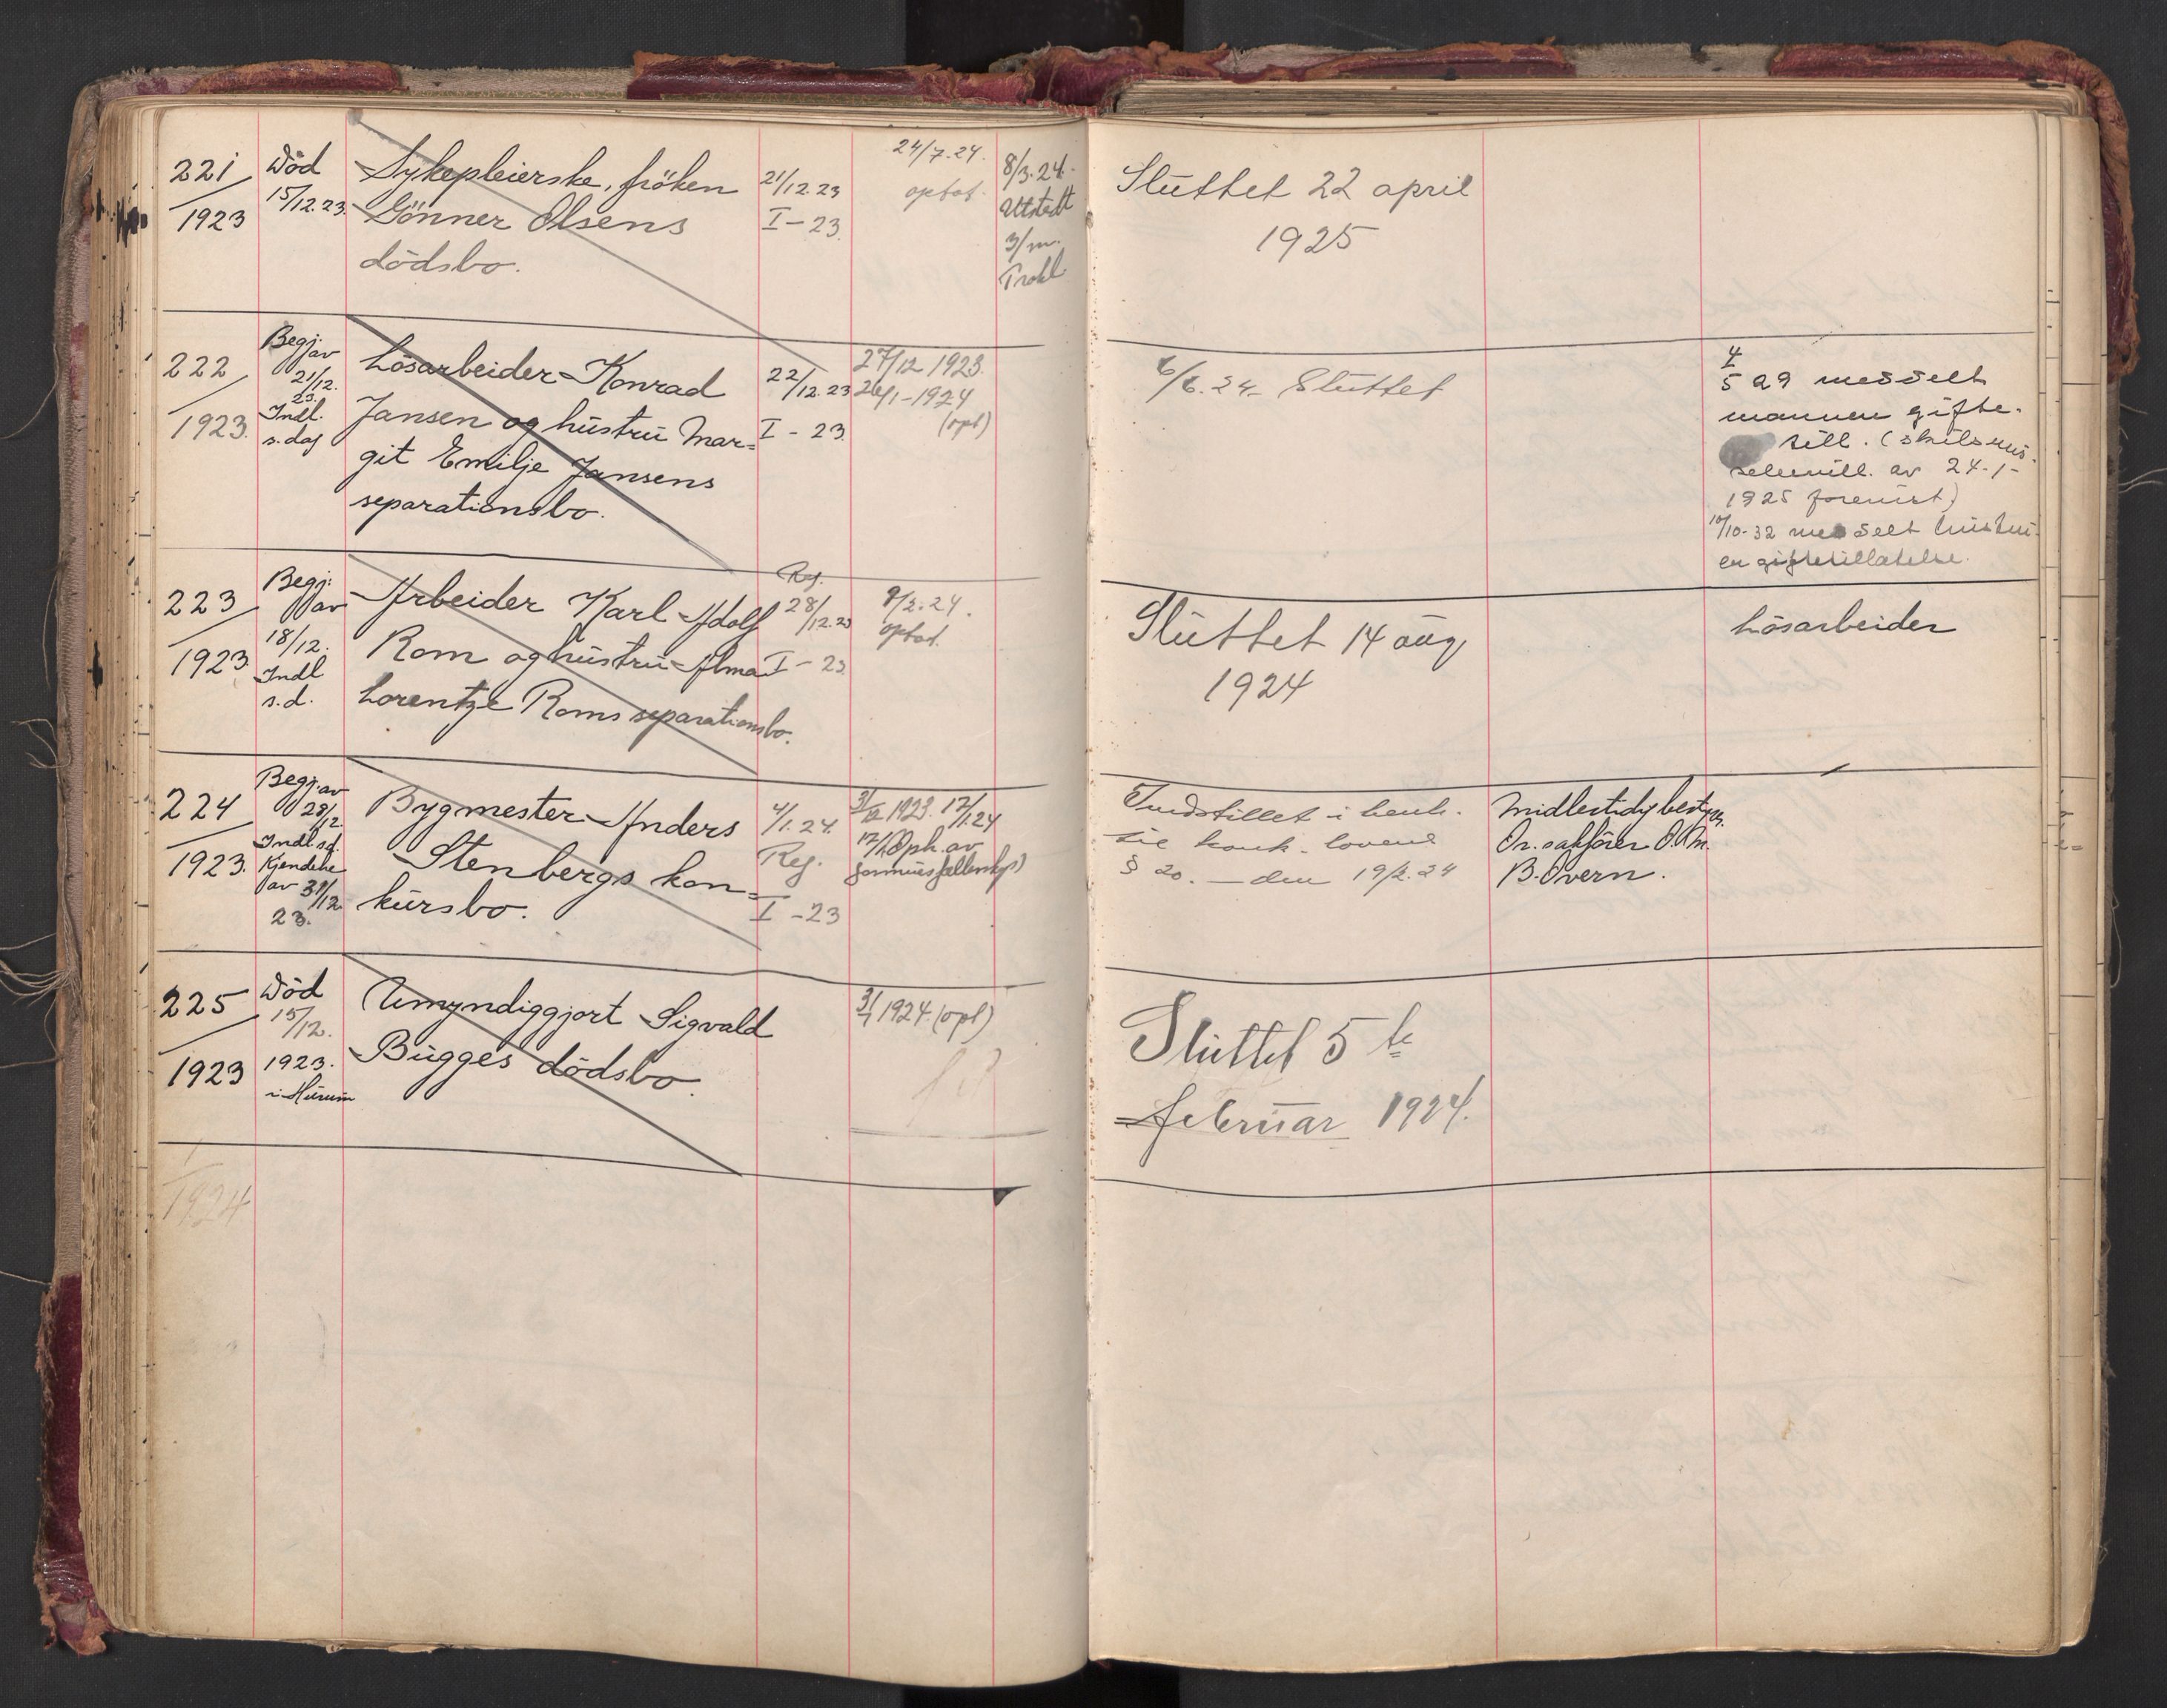 221
1923
Död
15/12.23.
Sykepleierske, fröken
Gönner Olsens
dödsbo.
21/12.23
I-23.
24/7.24.
optat.
8/3.24.
Utstedt
3/m.
Prokl.
Sluttet 22 april
1925
222
1923.
Begj.
av
21/12.
23.
Indl.
s. dag
Lösarbeider Konrad
Jansen og hustru Mar=
git Emilje Jansens
separationsbo.
22/12.23
I - 23.
27/12 1923.
1924
(opt)
6/6.24. Sluttet
4/5 29 meddelt
mannen gifte-
till. (skilsmis-
sebevill. av 24.1-
1925 forevist)
10/10-32 meddelt hustru
en giftetillatelse.
223
1923
Begj.
av
18/12.
Indl
s.d.
Arbeider Karl Adolf
Rom og hustru Alma
Lorentze Roms separationsbo.
Reg.
28/12.23
I - 23
9/2.24.
optat.
Sluttet 14 aug.
1924
Lösarbeider
224
1923.
Begj. av
29/12.
Indl sd.
Kjendelse
av 31/12
23.
Bygmester Anders
Stenbergs kon=
kursbo.
4/1.24.
Reg.
I - 23
31/12 1923. 17/1.24
17/1 Oph. av
formuesfellesskp)
Indstillet i henh.
til konk. lovens
§ 20. — den 19/2.24
Midlertidig bestyr.
Or. sakförer O. Chr.
B. Overn.
225
1923
Död
15/12.
1923.
i Hurum
Umyndiggjort Sigvald
Bugges dödsbo.
3/1 1924. (opt)
Sluttet 5te
februar 1924.
1924